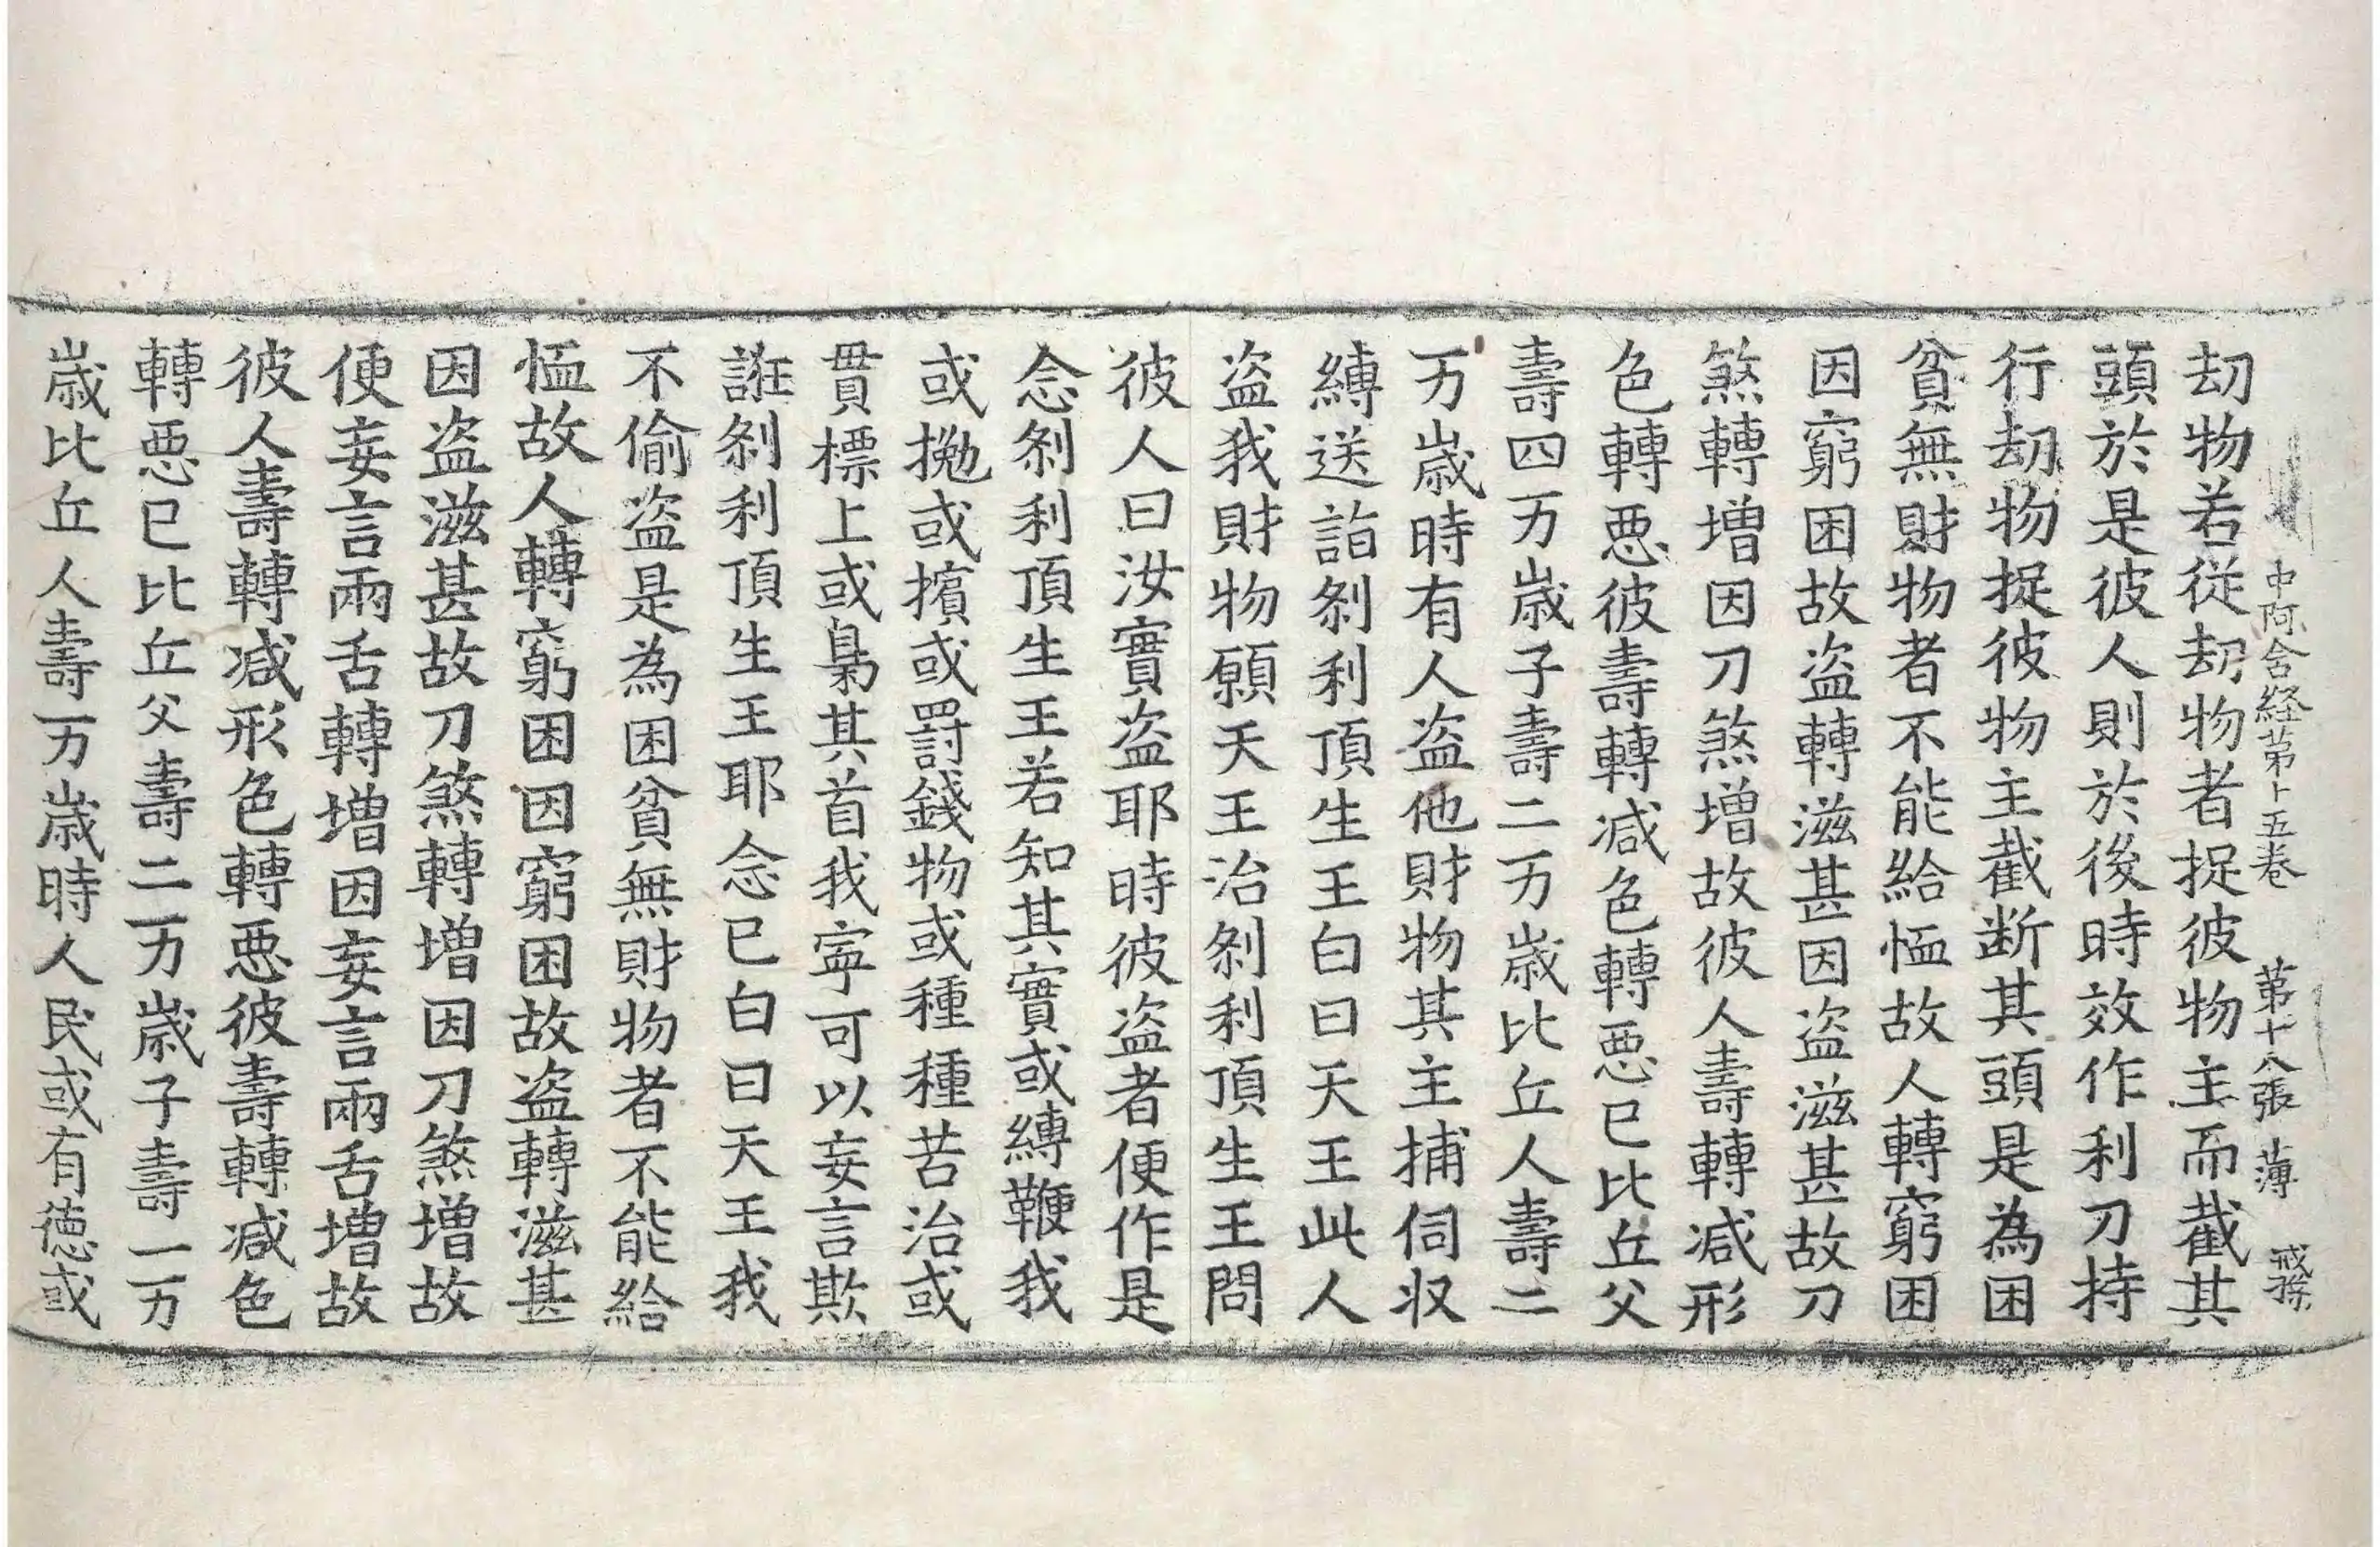 中阿含経第十五卷 第十八張 薄 戒孫
刧物若從刧物者捉彼物主而截其
頭於是彼人則於後時效作利刀持
行刧物捉彼物主截断其頭是為困
貧無財物者不能給恤故人轉窮困
因窮困故盗轉滋甚因盗滋甚故刀
煞轉増因刀煞増故彼人壽轉減形
色轉惡彼壽轉減色轉惡已比丘父
壽四万歳子壽二万歳比丘人壽二
万歳時有人盗他財物其主捕伺収
縛送詣刹利頂生王白曰天王此人
盗我財物願天王治刹利頂生王問
彼人曰汝實盗耶時彼盗者便作是
念刹利頂生王若知其實或縛鞭我
或抛或擯或罰錢物或種種苦治或
貫標上或梟其首我寧可以妄言欺
誑刹利頂生王耶念已白曰天王我
不偷盗是為困貧無財物者不能給
恤故人轉窮困因窮困故盗轉滋甚
因盗滋甚故刀煞轉増因刀煞増故
便妄言兩舌轉増因妄言兩舌増故
彼人壽轉減形色轉惡彼壽轉減色
轉惡已比丘父壽二万歳子壽一万
歳比丘人壽万歳時人民或有徳或